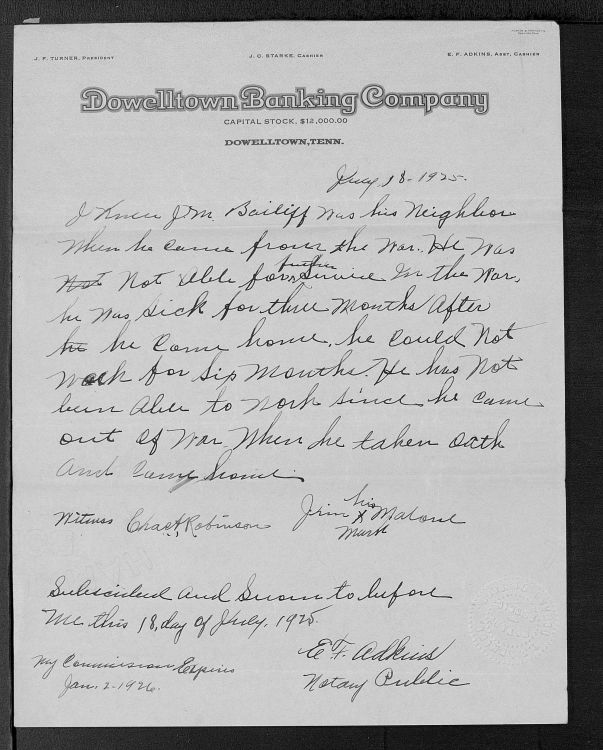 J. F. TURNER, PRESIDENT
J. C. STARKE, CASHIER
E. F. ADKINS, ASST. CASHIER
Dowelltown Banking Company
CAPITAL STOCK, $12,000.00
DOWELLTOWN, TENN.
July 18-1925-
I Knew J.M. Bailiff was his Neighbor
When he came from the War. He was
Not Not Able for further Service In the War,
he was sick for three Months After
he he come home, he could Not
Work for Six Months. He has Not
been Able to Work Since he came
out of War When he taken Oath
And Came home.
Witness Chas A. Robinson Jim his X Mark Malone
Subscribed and Sworn to before
Me this 18, day of July, 1925.
My Commission Expires
Jan. 2-1926.
E F. Adkins
Notary Public